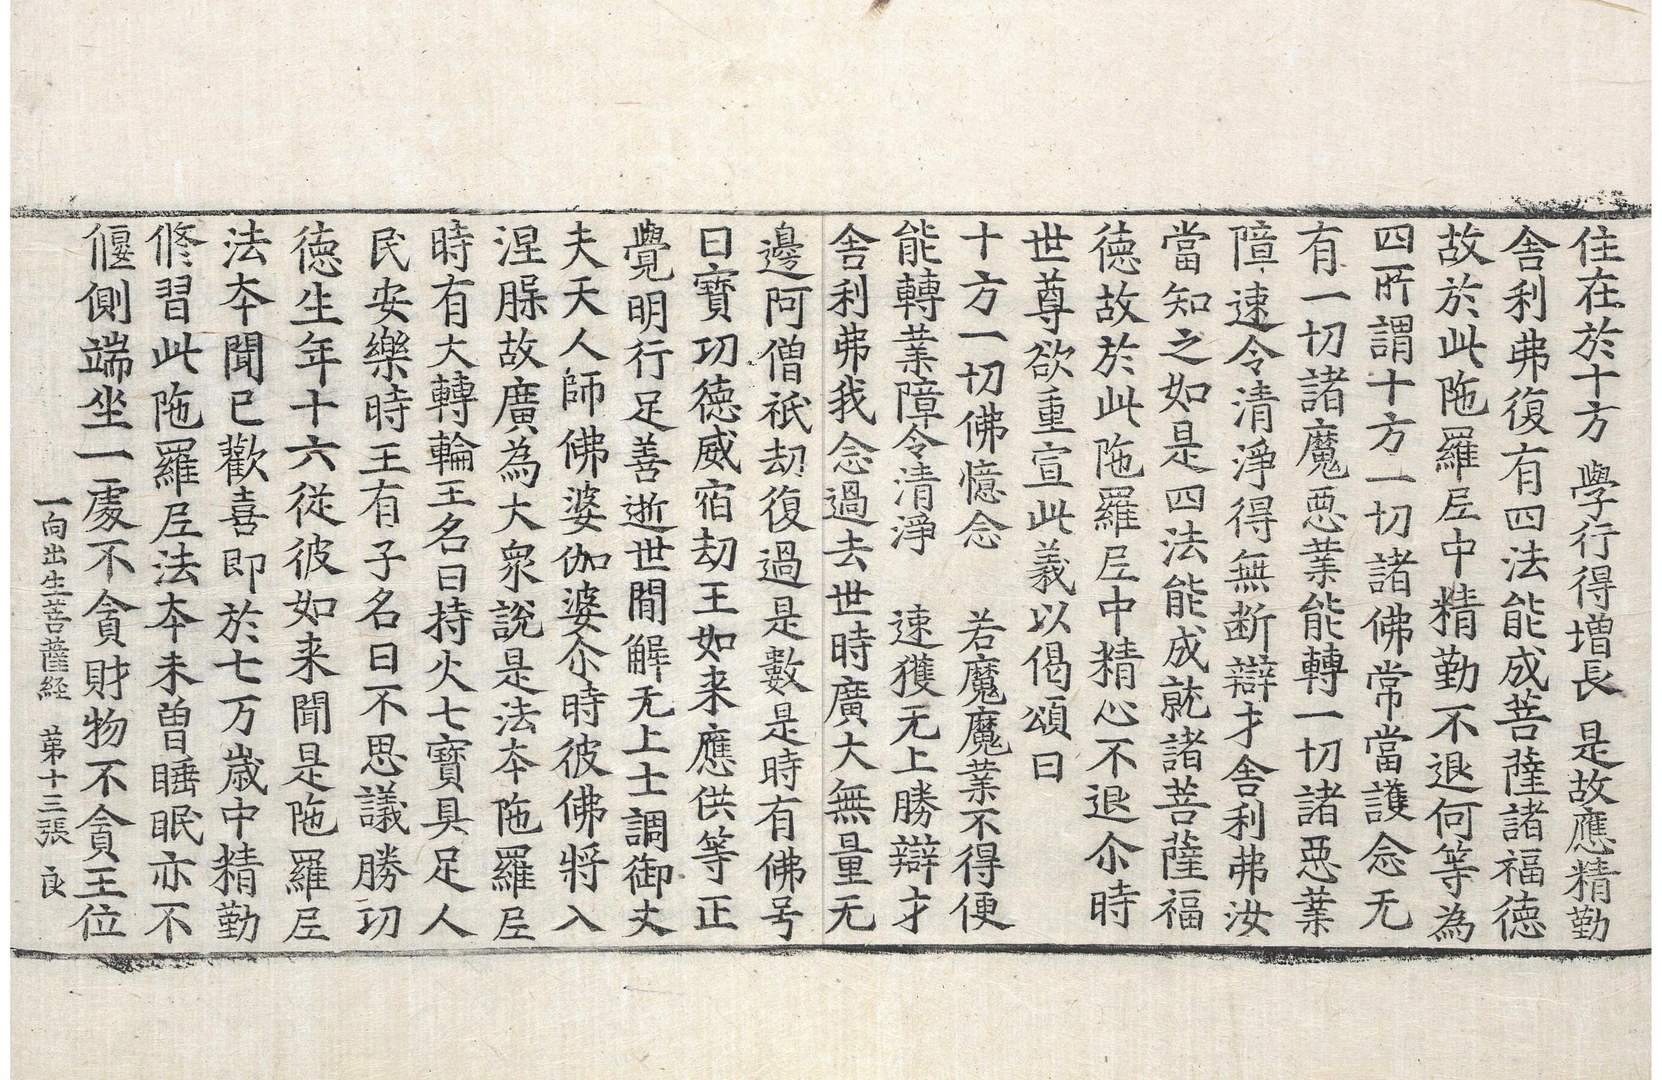 住在於十方　學行得增長　是故應精勤
舍利弗復有四法能成菩薩諸福德
故於此陁羅尼中精勤不退何等為
四所謂十方一切諸佛常當護念无
有一切諸魔惡業能轉一切諸惡業
障速令清淨得無断辯才舍利弗汝
當知之如是四法能成就諸菩薩福
德故於此陁羅尼中精心不退尒時
世尊欲重宣此義以偈頌曰
十方一切佛憶念　若魔魔業不得便
能轉業障令清淨　速獲无上勝辯才
舍利弗我念過去世時廣大無量无
邊阿僧祇劫復過是數是時有佛号
曰寶功德威宿劫王如来應供等正
覺明行足善逝世間解无上士調御丈
夫天人師佛婆伽婆尒時彼佛將入
涅槃故廣為大衆說是法本陁羅尼
時有大轉輪王名曰持火七寶具足人
民安樂時王有子名曰不思議勝功
德生年十六從彼如来聞是陁羅尼
法夲聞已歡喜即於七万歲中精勤
修習此陁羅尼法夲未曽睡眠亦不
偃側端坐一處不貪財物不貪王位
一向出生菩薩経　苐十三張　良